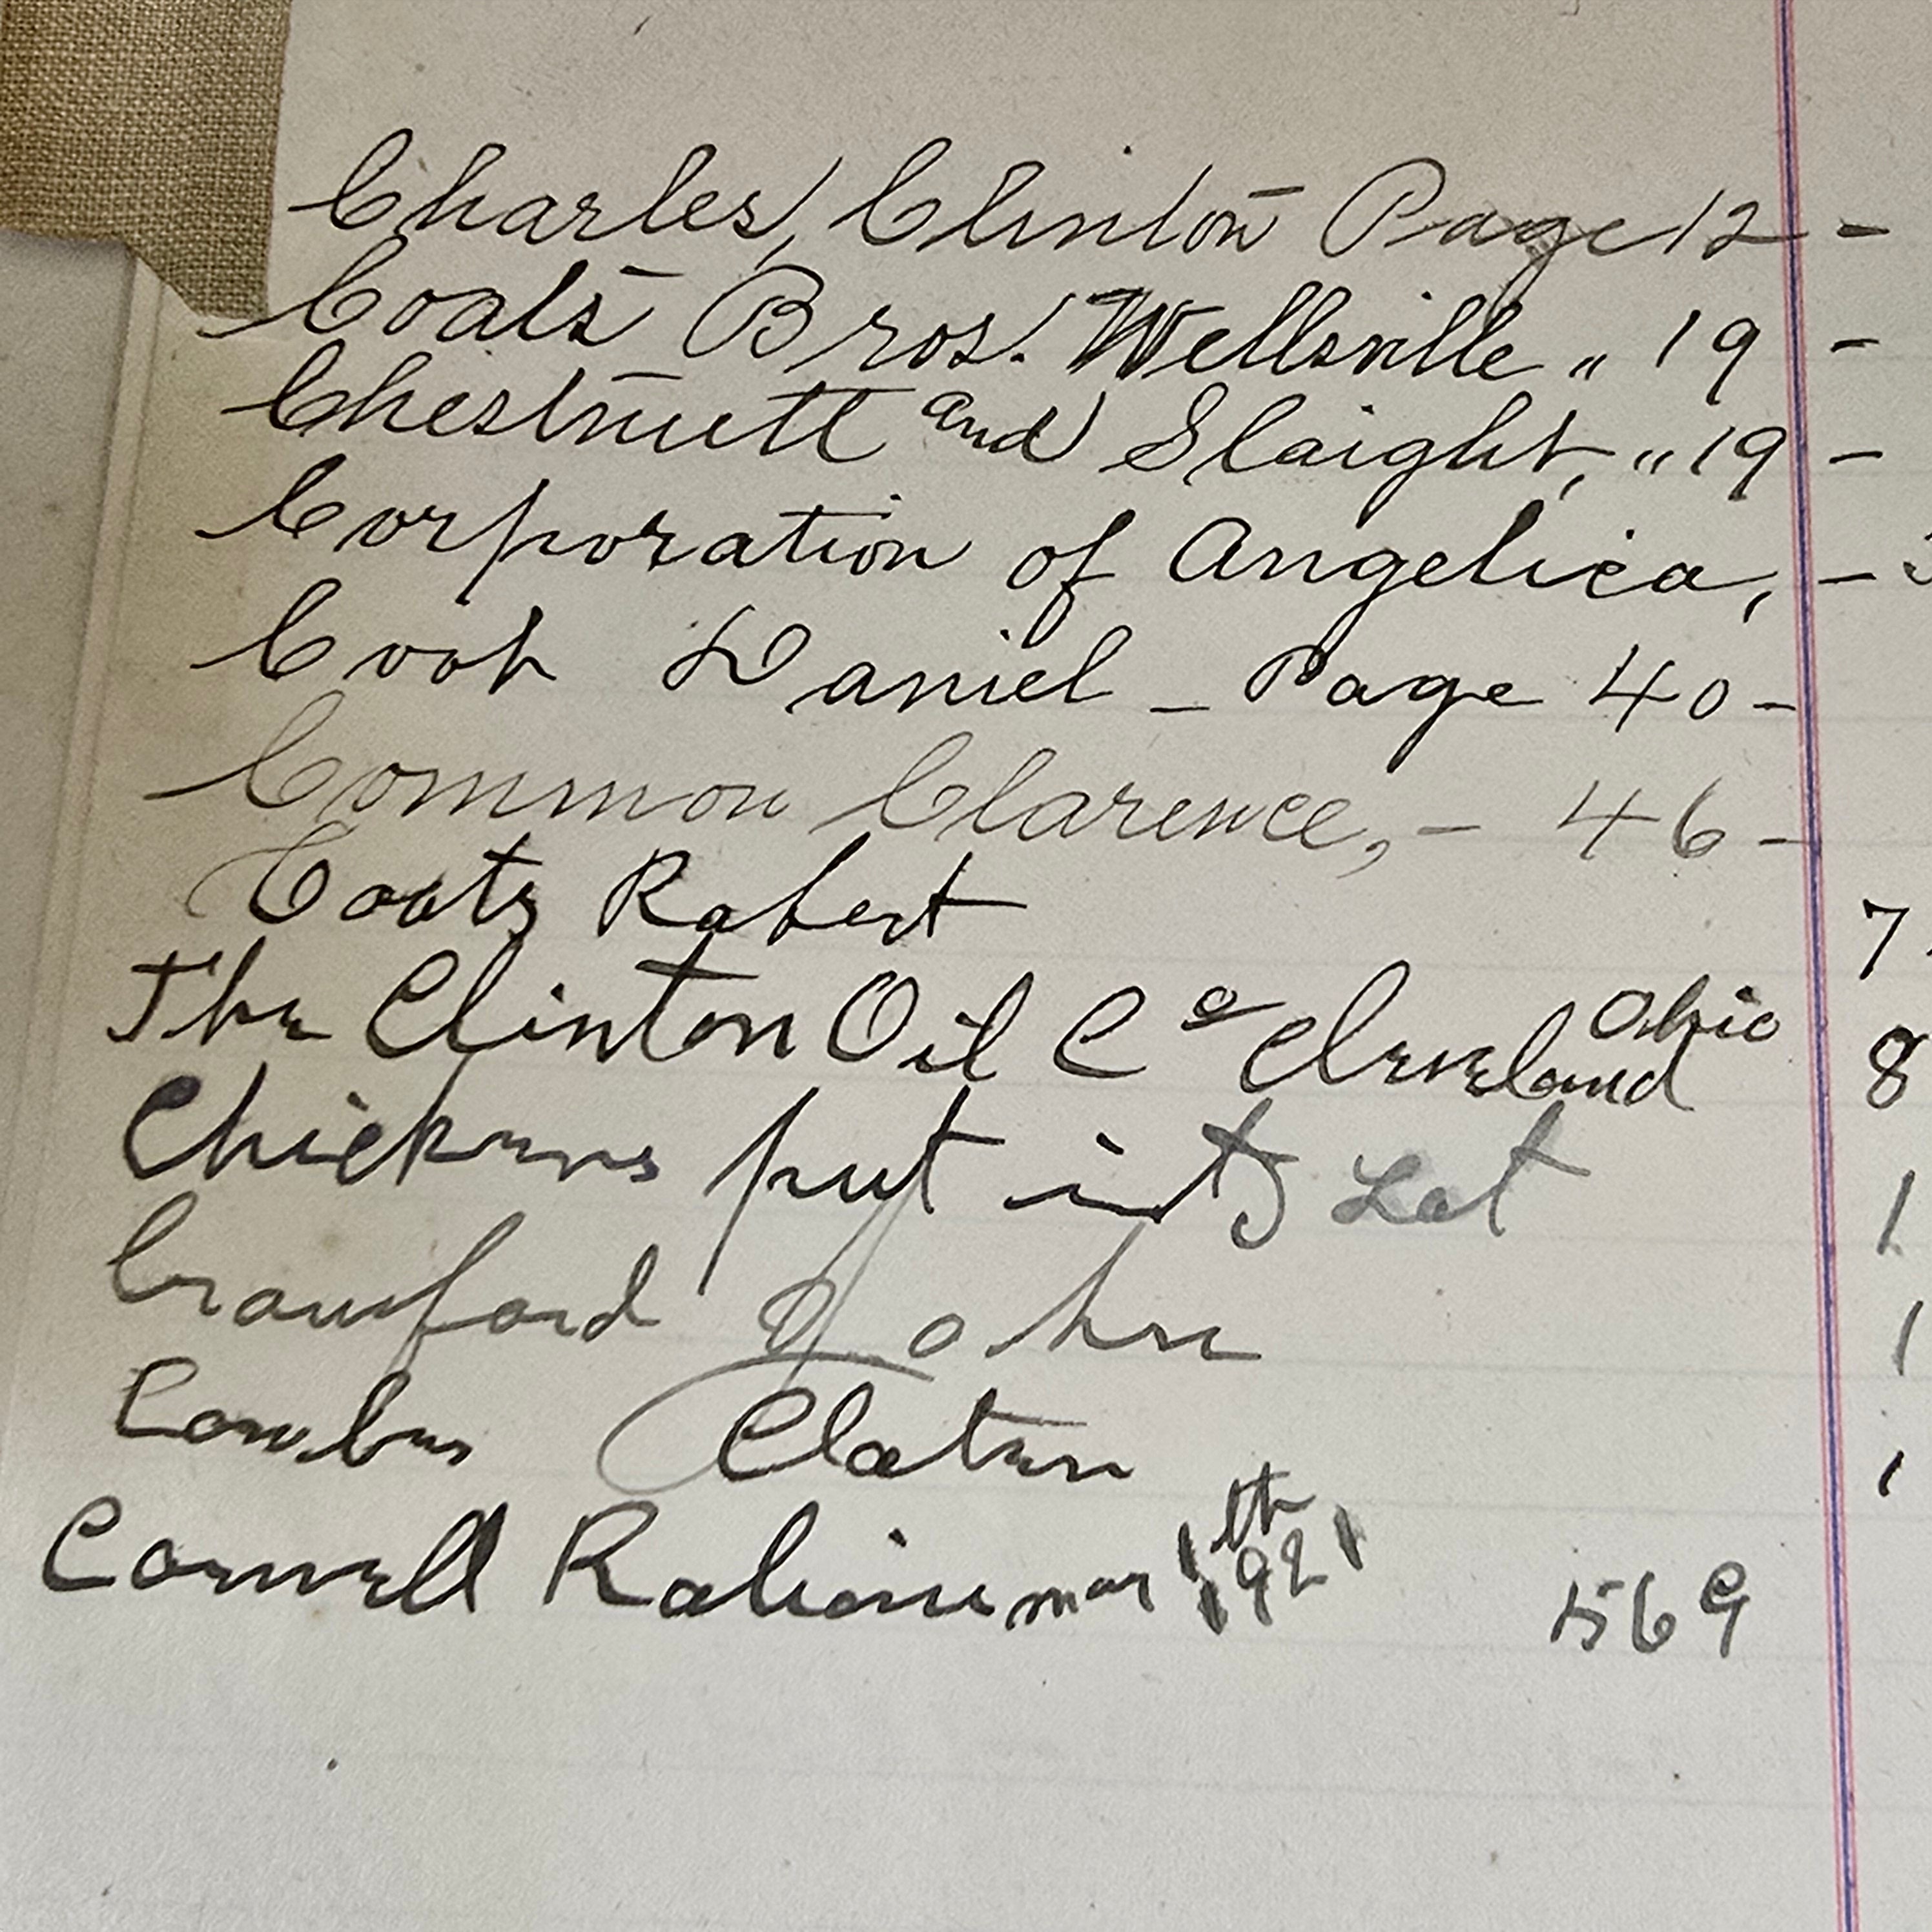 Charles, Clinton Page 12 -
Coats Bros. Wellsville „ 19 -
Chestnutt and Slaight, „ 19 -
Corporation of Angelica, -
Cook Daniel - Page 40 -
Common Clarence, - 46 -
Coats Robert 7
The Clinton Oil Co Cleveland Ohio 8
Chickens put into Lot 1
Crawford John 1
1
Cornell mar 1th 1921 569